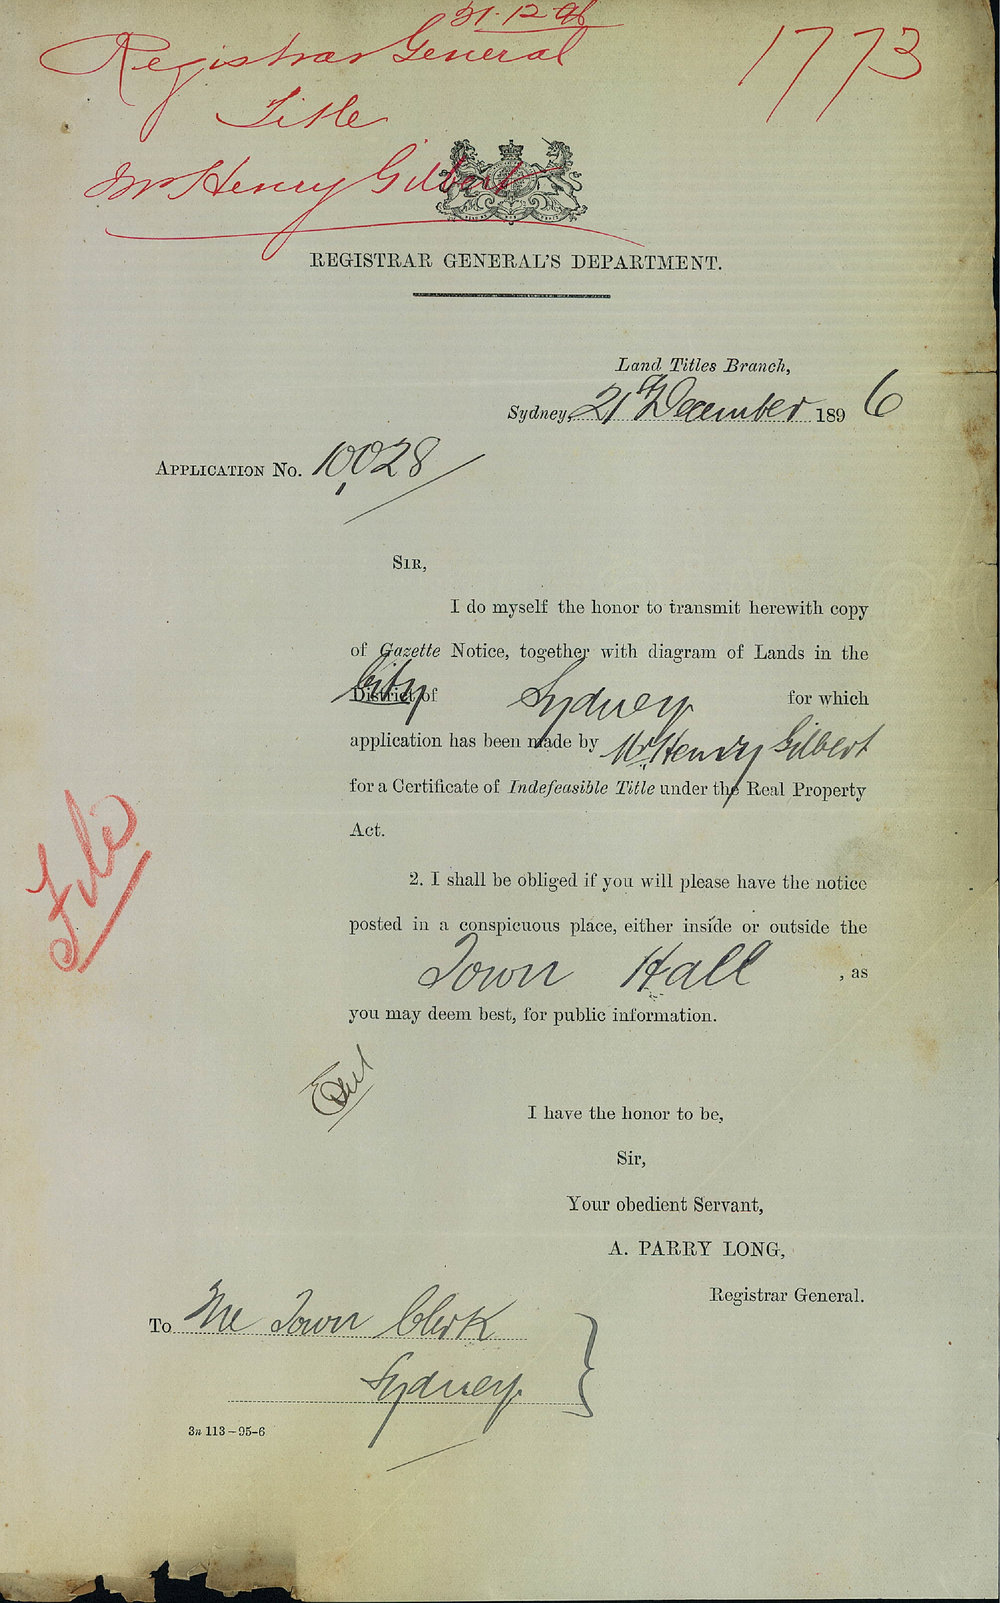 21.12.96
Registrar General
1773
Title
Mr Henry Gilbert
REGISTRAR GENERAL'S DEPARTMENT.
Land Titles Branch,
Sydney, 21st December 1896
APPLICATION No. 10,028
SIR,
I do myself the honor to transmit herewith copy
of Gazette Notice, together with diagram of Lands in the
District City of Sydney for which
application has been made by Mr. Henry Gilbert
for a Certificate of Indefeasible Title under the Real Property
Act.
2. I shall be obliged if you will please have the notice
posted in a conspicuous place, either inside or outside the
Town Hall , as
you may deem best, for public information.
File
I have the honor to be,
Sir,
Your obedient Servant,
A. PARRY LONG,
Registrar General.
To The Town Clerk
Sydney
3n 113–95–6